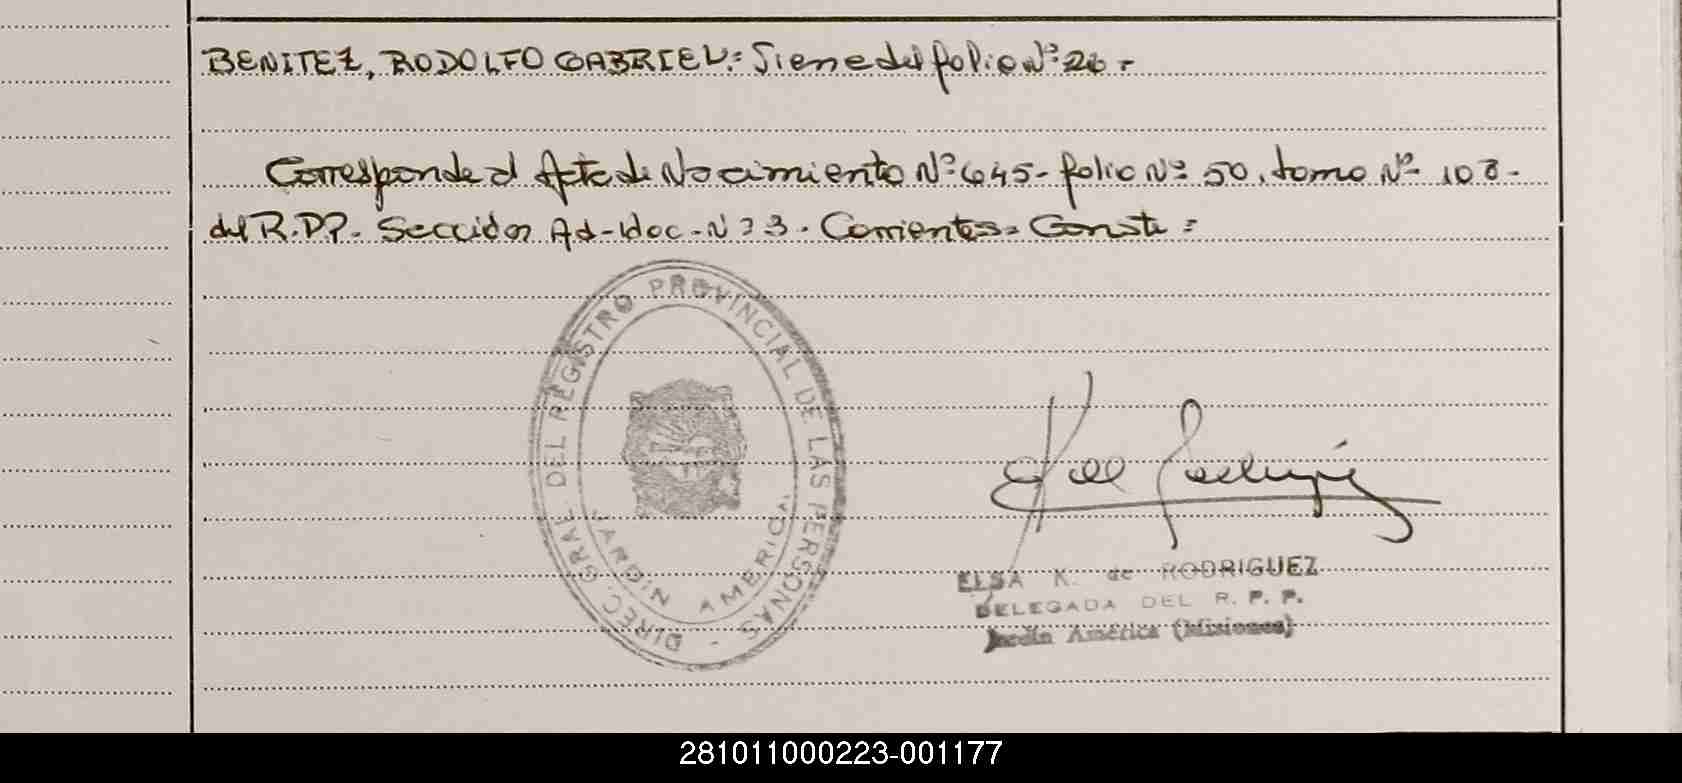 BENITEZ, RODOLFO GABRIEL.= Viene del folio Nº 26 =
Corresponde al Acta de Nacimiento Nº 645 - folio Nº 50, tomo Nº 108 -
del R.P.P. Sección Ad-Hoc - Nº 3 - Corrientes = Conste =
DIREC. GRAL. DEL REGISTRO PROVINCIAL DE LAS PERSONAS -
JARDIN AMERICA
ELSA K. de RODRIGUEZ
DELEGADA DEL R. P. P.
Jardín América (Misiones)
281011000223-001177